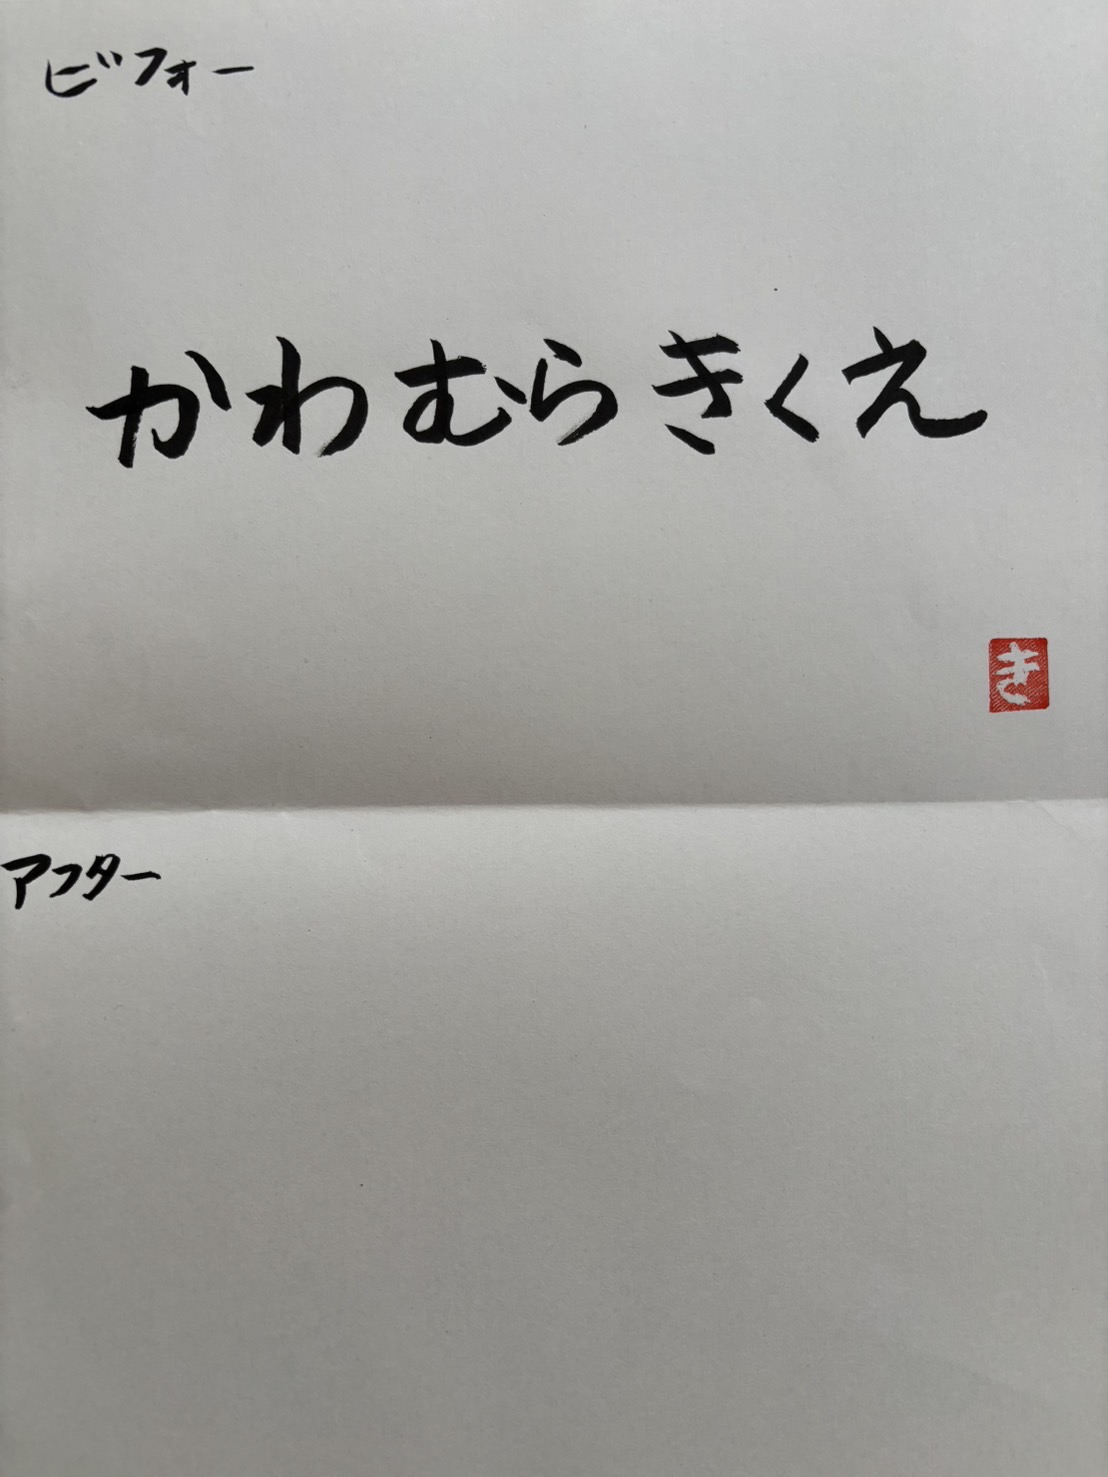 ビフォー
かわむらきくえ
き
アフター